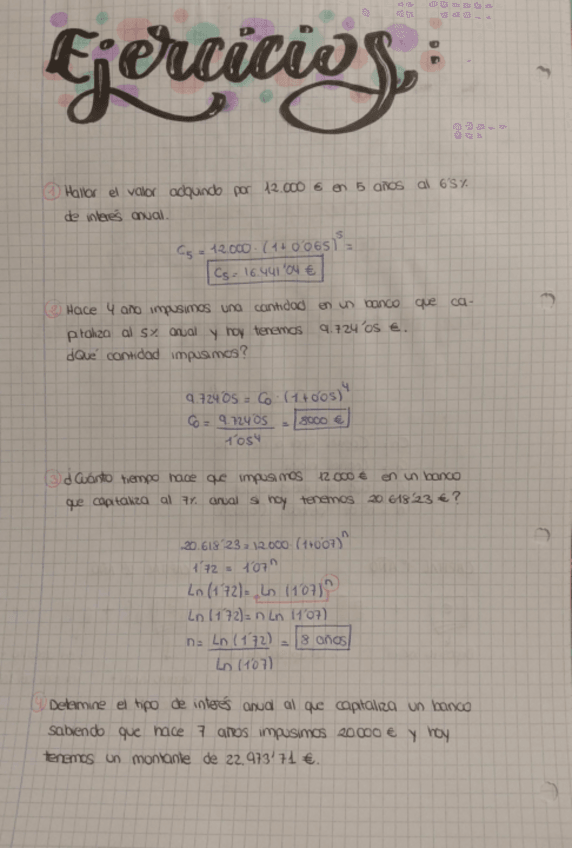 Ejercicios:
1 Hallar el valor adquirido por 12.000 € en 5 años al 6'5%
de interés anual.
C5 = 12.000 · (1+0'065)^5 =
C5 = 16.441'04 €
2 Hace 4 año impusimos una cantidad en un banco que ca-
pitaliza al 5% anual y hoy tenemos 9.724'05 €.
¿Qué cantidad impusimos?
9.724'05 = C0 · (1+0'05)^4
C0 = 9.724'05 / 1'05^4 = 8000 €
3 ¿Cuánto tiempo hace que impusimos 12.000 € en un banco
que capitaliza al 7% anual si hoy tenemos 20.618'23 €?
20.618'23 = 12.000 · (1+0'07)^n
1'72 = 1'07^n
Ln (1'72) = Ln (1'07)^n
Ln (1'72) = n Ln (1'07)
n = Ln (1'72) / Ln (1'07) = 8 años
4 Determine el tipo de interés anual al que capitaliza un banco
sabiendo que hace 7 años impusimos 20.000 € y hoy
tenemos un montante de 22.973'71 €.